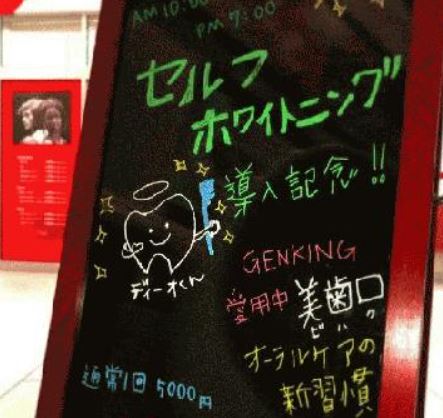 AM 10:00
PM 7:00
セルフ
ホワイトニング
導入記念!!
ディーオくん
GENKING
愛用中 美歯口
オーラルケアの
新習慣
通常1回 5000円